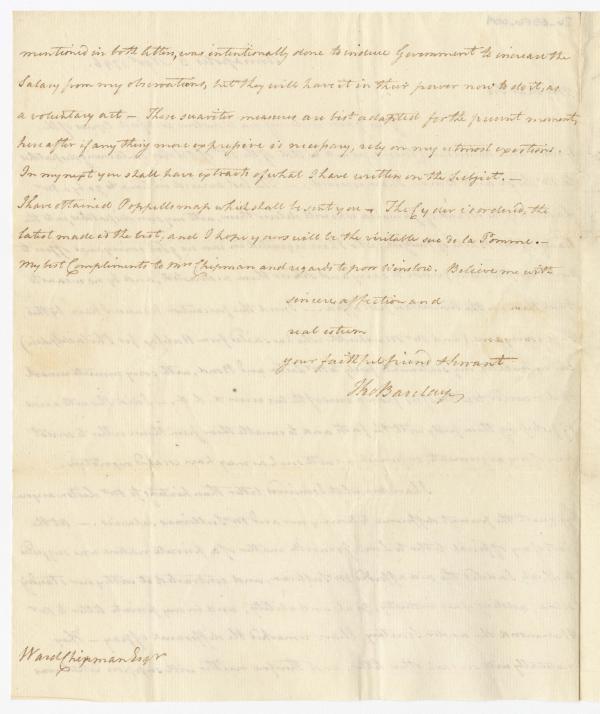 mentioned in both letters, was intentionally done to induce Government to increase the
Salary from my observations, but they will have it in their power now to do it, as
a voluntary act — These suaviter measures are best adapted for the present moment,
hereafter if any thing more expressive is necessary, rely on my utmost exertions.
In my next you shall have extracts of what I have written on the Subject. —
I have obtained Popples map which shall be sent you — The Cyder is ordered, the
latest made is the best, and I hope yours will be the veritable sue de la Pomme. —
My best Compliments to Mrs Chipman and regards to poor Winslow. Believe me with
sincere affection and
real esteem
your faithful friend & Servant
Tho Barclay
Ward Chipman Esqr